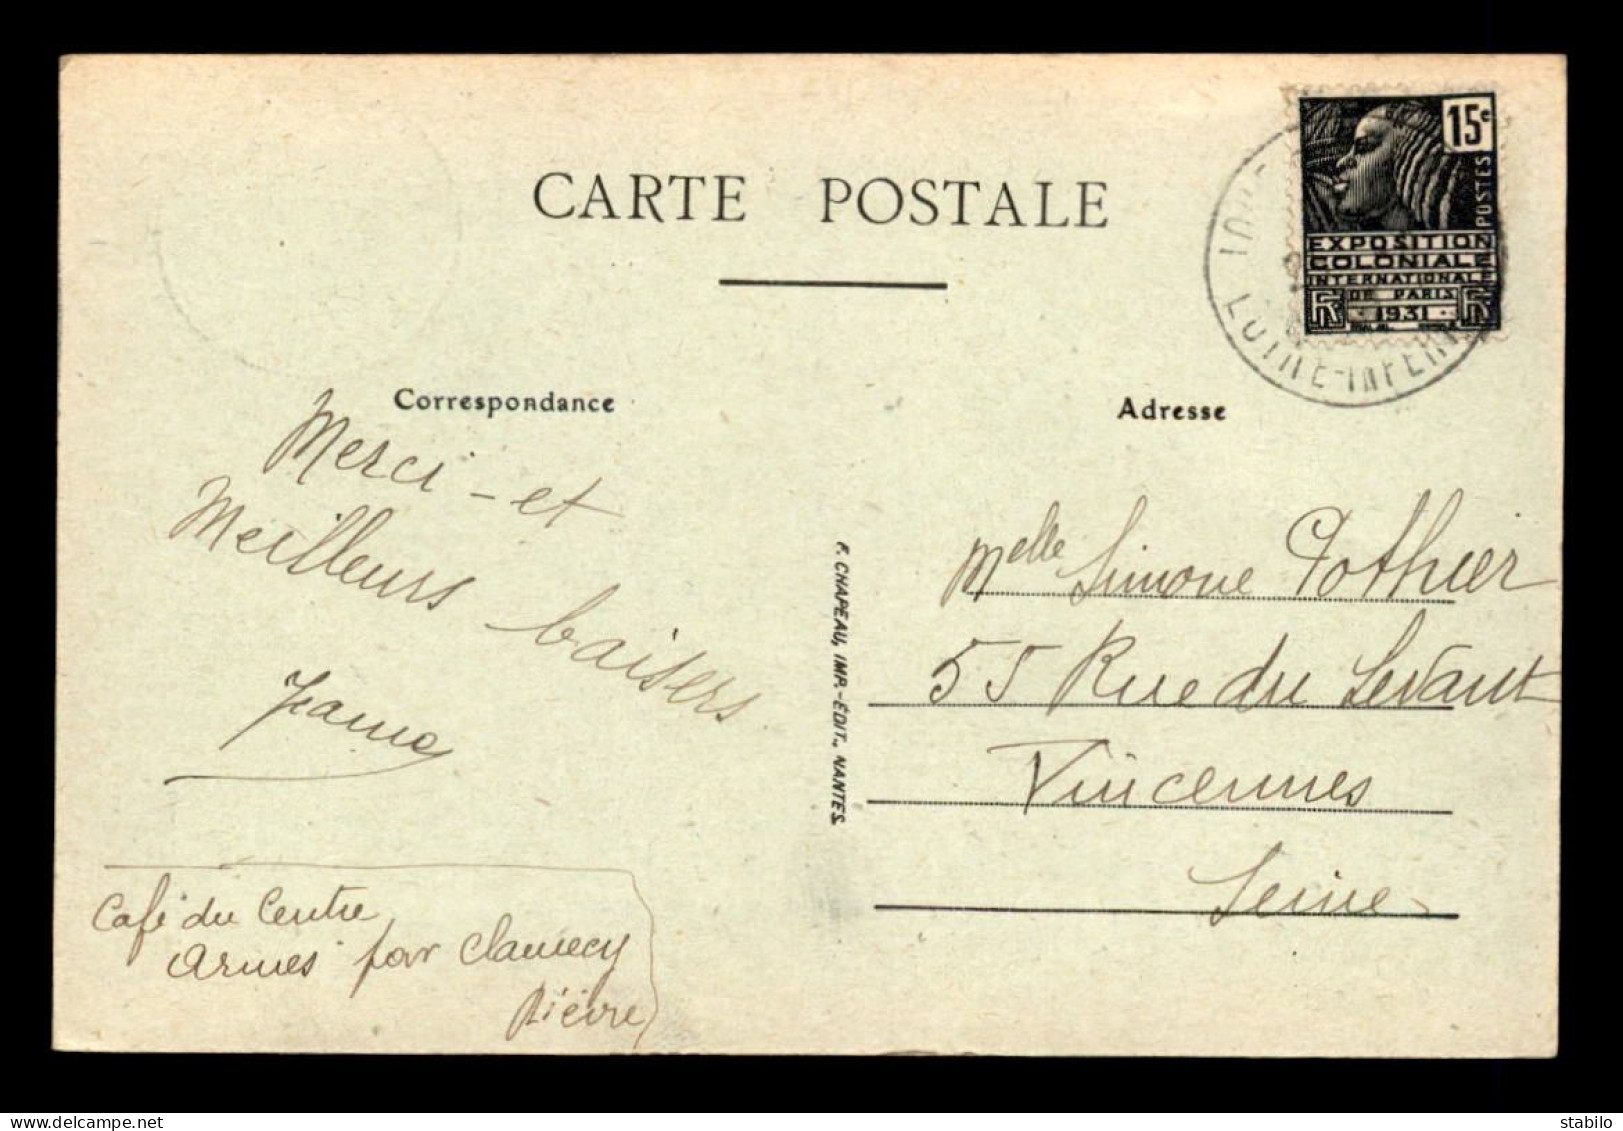 CARTE POSTALE
15c
POSTES
EXPOSITION
COLONIALE
INTERNATIONALE
DE PARIS
RF 1931 RF
LOIRE-INFER
Correspondance
Merci - et
Meilleurs baisers
Jeanne
Café du Centre
Armes par Clamecy
Nièvre
F. CHAPEAU, IMP.-ÉDIT., NANTES.
Adresse
Melle Simone Pothier
55 Rue du Levant
Vincennes
Seine
delcampe.net
stabilo